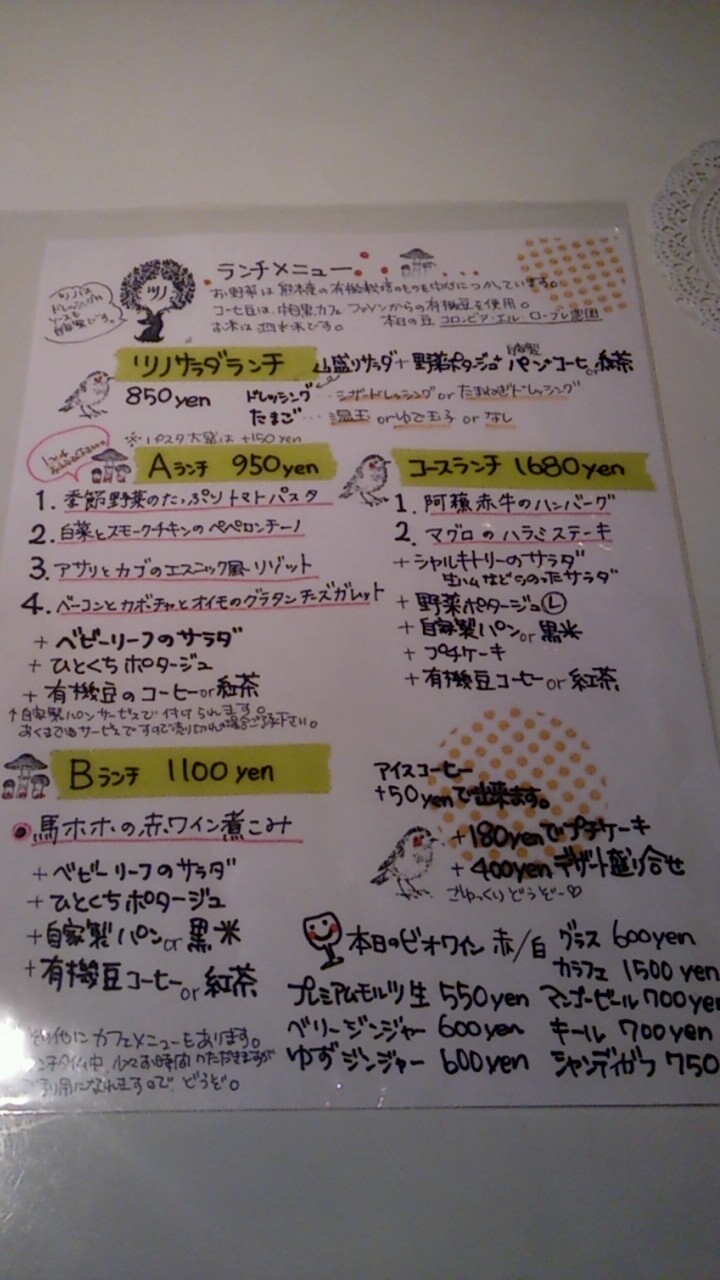 ランチメニュー
ツノ
ツノは
ドレッシングも
ソースも
自家製です。
お野菜は熊本産の有機栽培のものを中心につかっています。
コーヒー豆は、中目黒カフェファソンからの有機豆を使用。
お米は酒米です。 本日の豆 コロンビア・エル・ローブレ農園
ツノサラダランチ 山盛りサラダ+野菜ポタージュ+自家製パン+コーヒーor紅茶
850yen ドレッシング…シーザードレッシング or たまねぎドレッシング
たまご…温玉 or ゆで玉子 or なし
※パスタ大盛は+150yen
Aランチ 950yen
1. 季節野菜のたっぷりトマトパスタ
2. 白菜とスモークチキンのペペロンチーノ
3. アサリとカブのエスニック風リゾット
4. ベーコンとカボチャとオイモのグラタンチーズガレット
+ベビーリーフのサラダ
+ひとくちポタージュ
+有機豆のコーヒーor紅茶
↑自家製パンサービスで付けられます。
あくまでもサービスですので売り切れの場合ご了承下さい。
コースランチ 1680yen
1. 阿蘇赤牛のハンバーグ
2. マグロのハラミステーキ
+シャルキトリーのサラダ
生ハムなどらのったサラダ
+野菜ポタージュⓁ
+自家製パンor黒米
+プチケーキ
+有機豆コーヒーor紅茶
Bランチ 1100yen
馬ホホの赤ワイン煮こみ
+ベビーリーフのサラダ
+ひとくちポタージュ
+自家製パンor黒米
+有機豆コーヒーor紅茶
アイスコーヒー
+50yenで出来ます。
+180yenでプチケーキ
+400yenデザート盛り合せ
ごゆっくりどうぞー♡
本日のビオワイン 赤/白 グラス 600yen
カラフェ 1500yen
プレミアムモルツ生 550yen マンゴービール 700yen
ベリージンジャー 600yen キール 700yen
ゆずジンジャー 600yen シャンディガフ 750
その他にカフェメニューもあります。
お時間いただきますが
ご利用になれますので どうぞ。